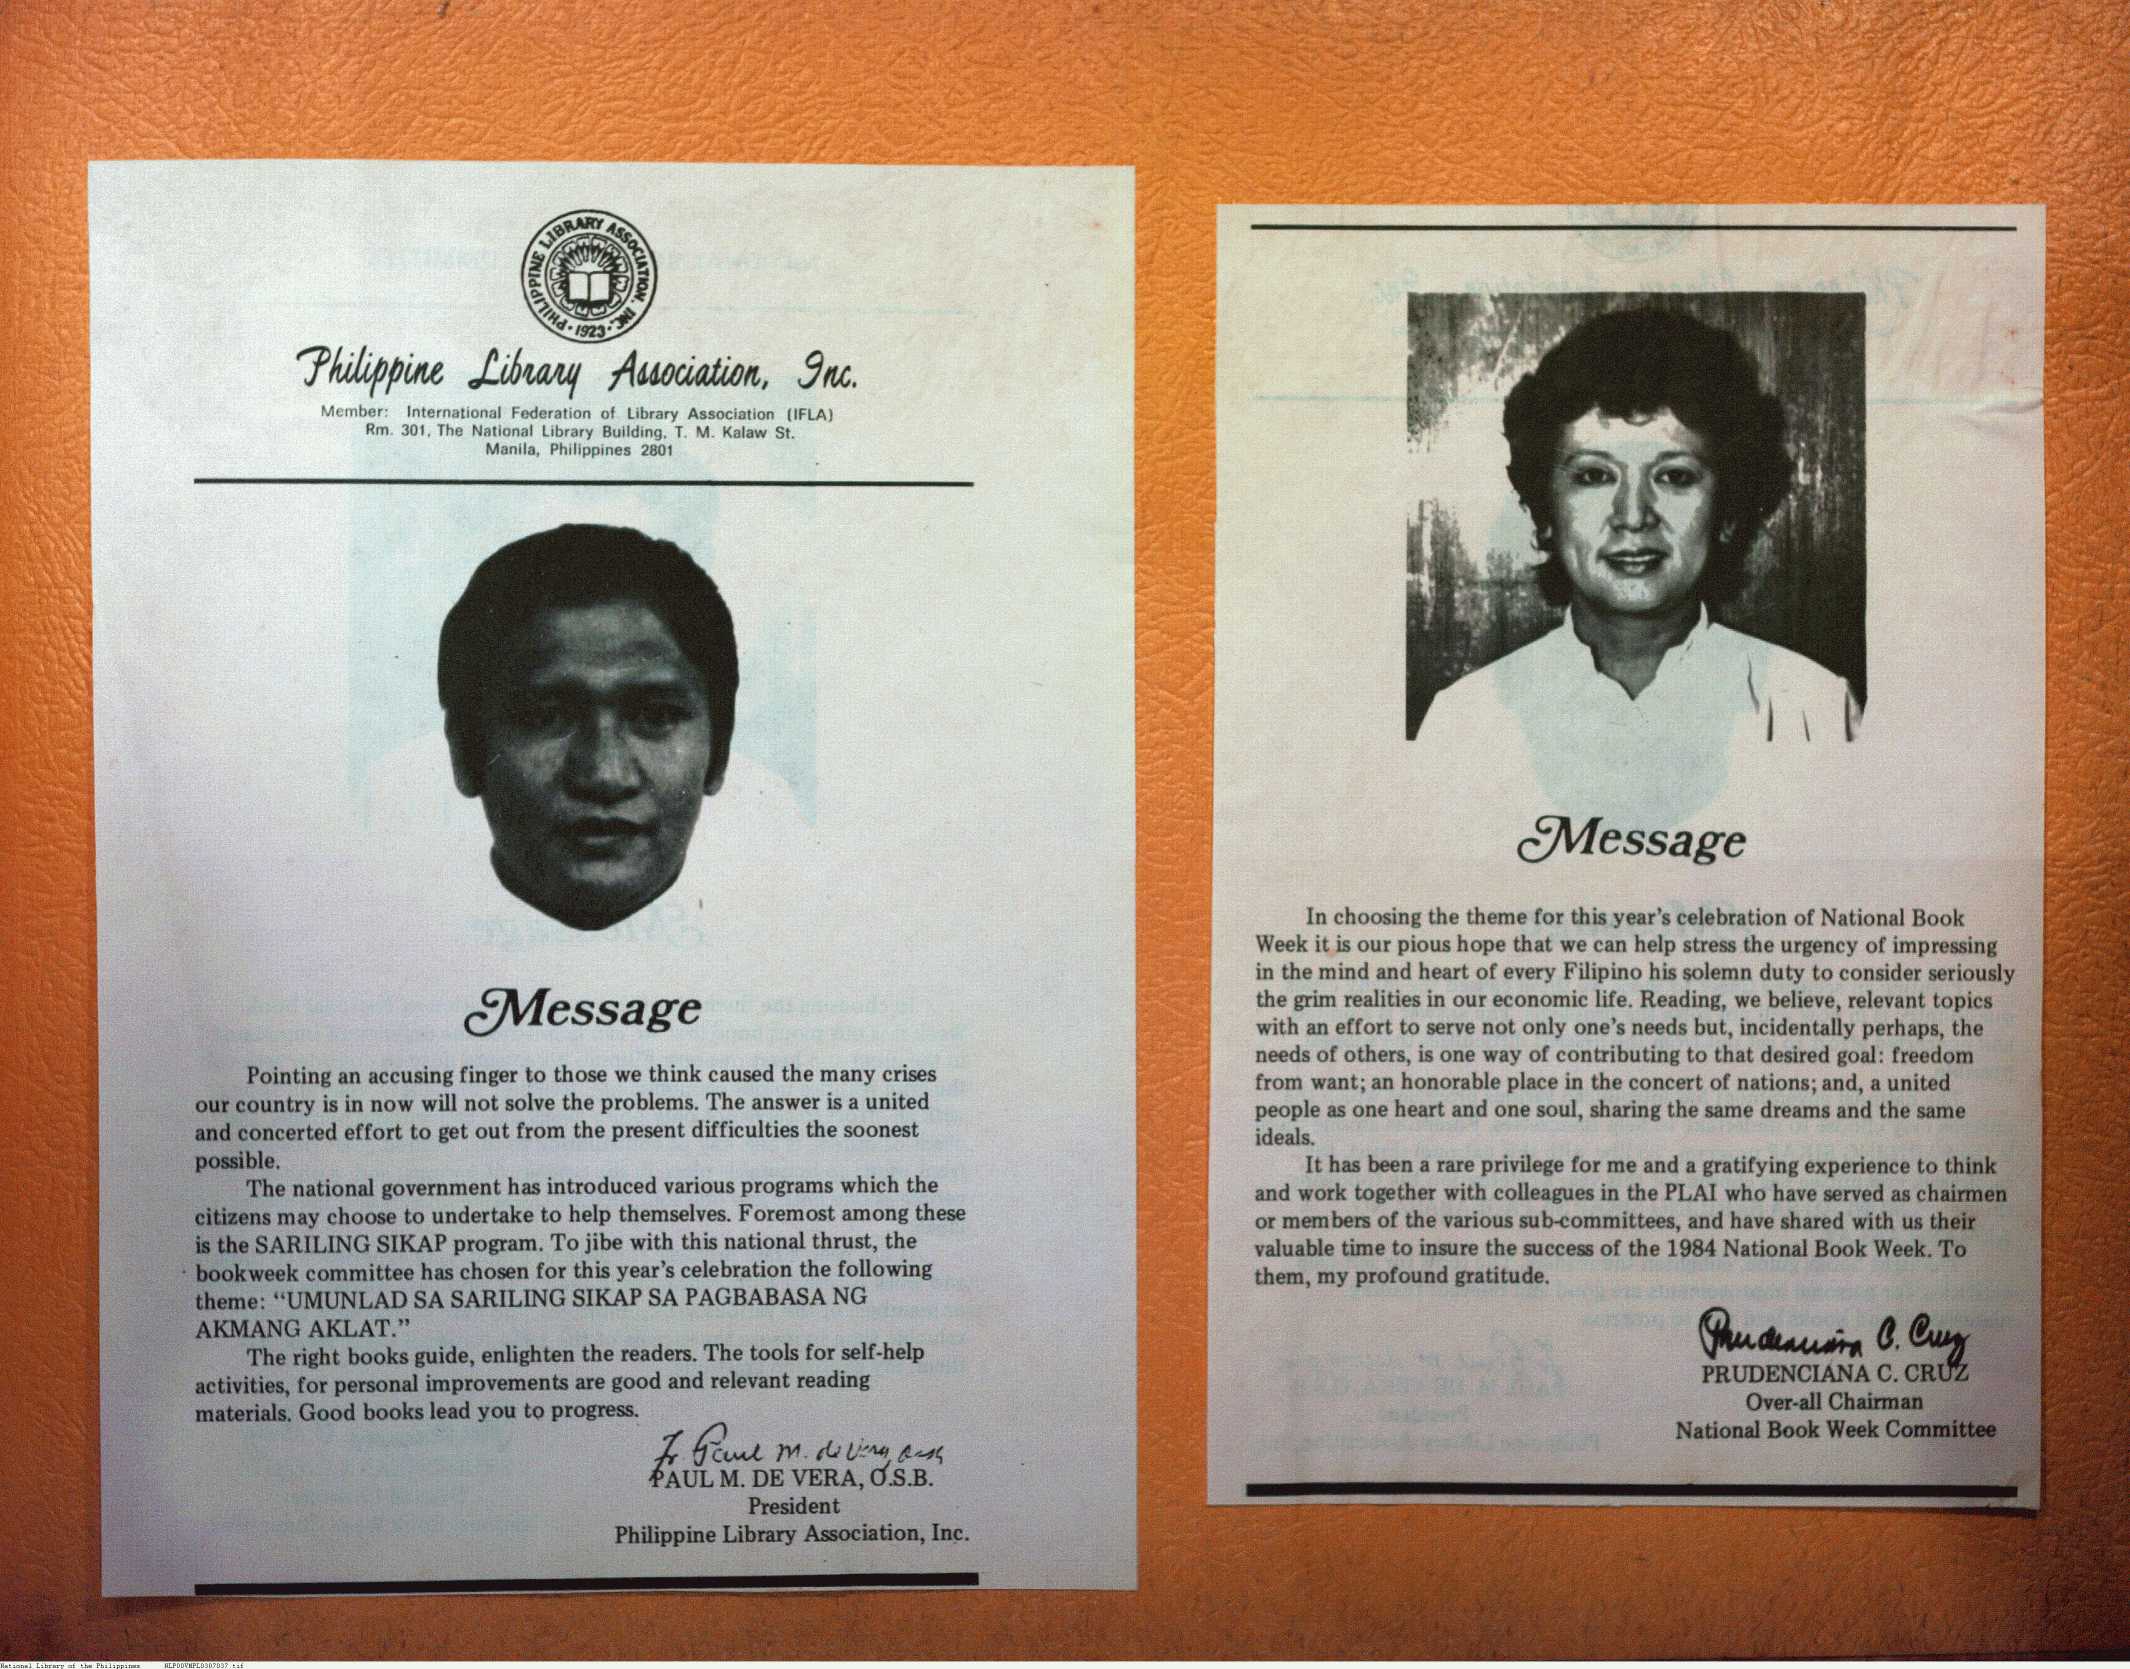 PHILIPPINE LIBRARY ASSOCIATION, INC.
1923
Philippine Library Association, Inc.
Member: International Federation of Library Association (IFLA)
Rm. 301, The National Library Building, T. M. Kalaw St.
Manila, Philippines 2801
Message
Pointing an accusing finger to those we think caused the many crises
our country is in now will not solve the problems. The answer is a united
and concerted effort to get out from the present difficulties the soonest
possible.
The national government has introduced various programs which the
citizens may choose to undertake to help themselves. Foremost among these
is the SARILING SIKAP program. To jibe with this national thrust, the
bookweek committee has chosen for this year's celebration the following
theme: “UMUNLAD SA SARILING SIKAP SA PAGBABASA NG
AKMANG AKLAT.”
The right books guide, enlighten the readers. The tools for self-help
activities, for personal improvements are good and relevant reading
materials. Good books lead you to progress.
Fr Paul M. de Vera, OSB
PAUL M. DE VERA, O.S.B.
President
Philippine Library Association, Inc.
Message
In choosing the theme for this year's celebration of National Book
Week it is our pious hope that we can help stress the urgency of impressing
in the mind and heart of every Filipino his solemn duty to consider seriously
the grim realities in our economic life. Reading, we believe, relevant topics
with an effort to serve not only one's needs but, incidentally perhaps, the
needs of others, is one way of contributing to that desired goal: freedom
from want; an honorable place in the concert of nations; and, a united
people as one heart and one soul, sharing the same dreams and the same
ideals.
It has been a rare privilege for me and a gratifying experience to think
and work together with colleagues in the PLAI who have served as chairmen
or members of the various sub-committees, and have shared with us their
valuable time to insure the success of the 1984 National Book Week. To
them, my profound gratitude.
Prudenciana C. Cruz
PRUDENCIANA C. CRUZ
Over-all Chairman
National Book Week Committee
National Library of the Philippines NLP00VMPL0307037.tif